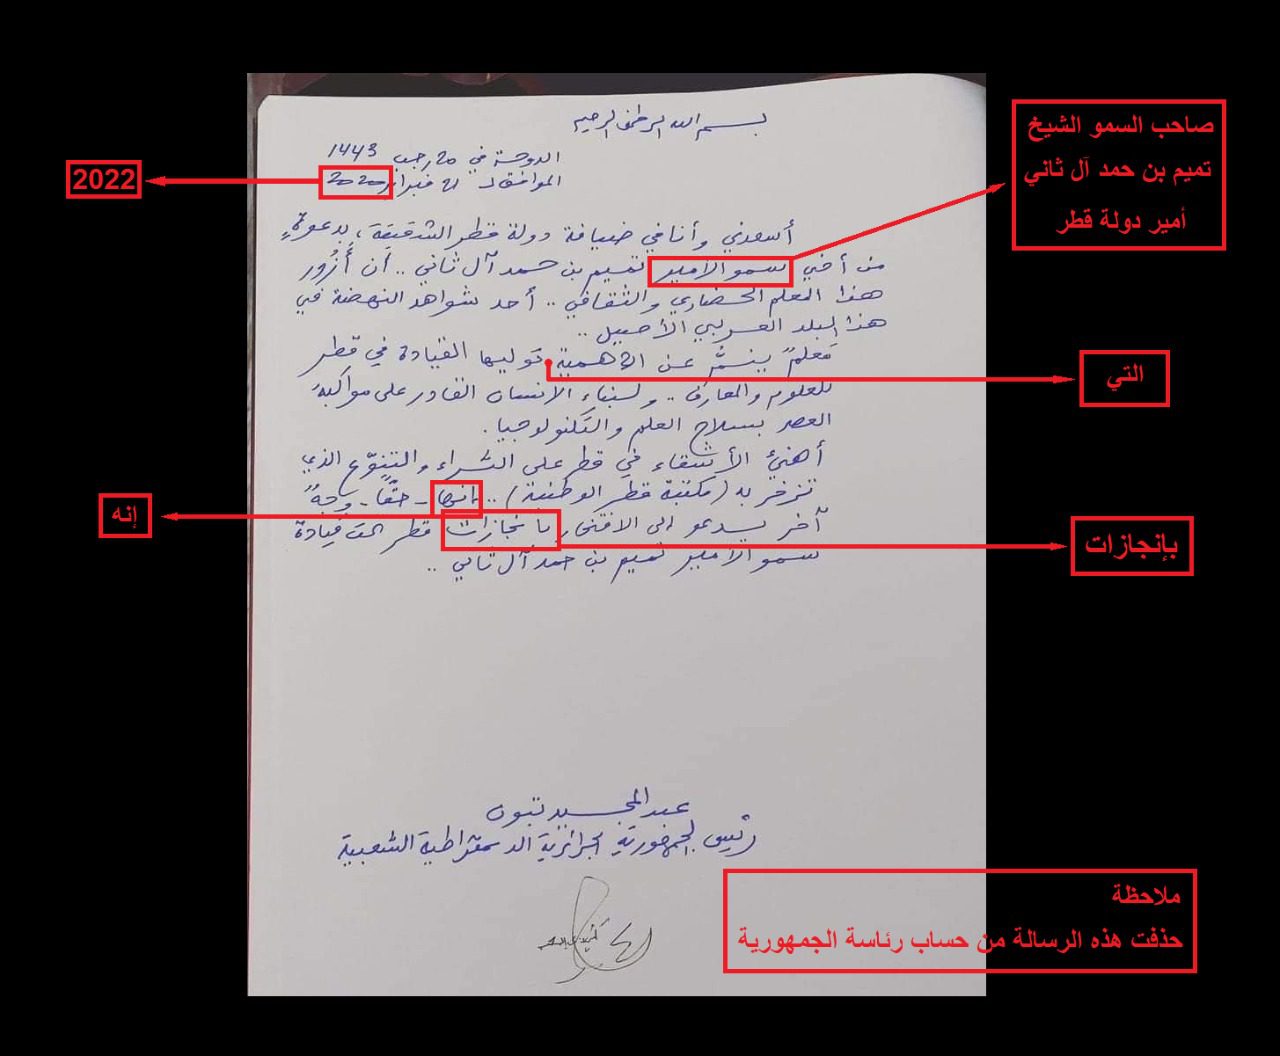 بسم الله الرحمن الرحيم
الدوحة في 20 رجب 1443
الموافق لـ 21 فبراير 2020
2022
صاحب السمو الشيخ
تميم بن حمد آل ثاني
أمير دولة قطر
أسعدني وأنا في ضيافة دولة قطر الشقيقة، بدعوةٍ
من أخي سمو الأمير تميم بن حمد آل ثاني .. أن أزُور
هذا المعلم الحضاري والثقافي .. أحد شواهد النهضة في
هذا البلد العربي الأصيل ..
مَعلمٌ ينمُّ عن الأهمية توليها القيادة في قطر
التي
للعلوم والمعارف .. ولبناء الانسان القادر على مواكبة
العصر بسلاح العلم والتكنولوجيا.
أهنئ الأشقاء في قطر على الثراء والتنوّع الذي
تزخر به (مكتبة قطر الوطنية) .. انها - حقّا - وجهٌ
إنه
آخر يدعو الى الافتخار بانجازات قطر تحت قيادة
بإنجازات
سمو الأمير تميم بن حمد آل ثاني ..
عبد المجيد تبون
رئيس الجمهورية الجزائرية الديمقراطية الشعبية
ملاحظة
حذفت هذه الرسالة من حساب رئاسة الجمهورية